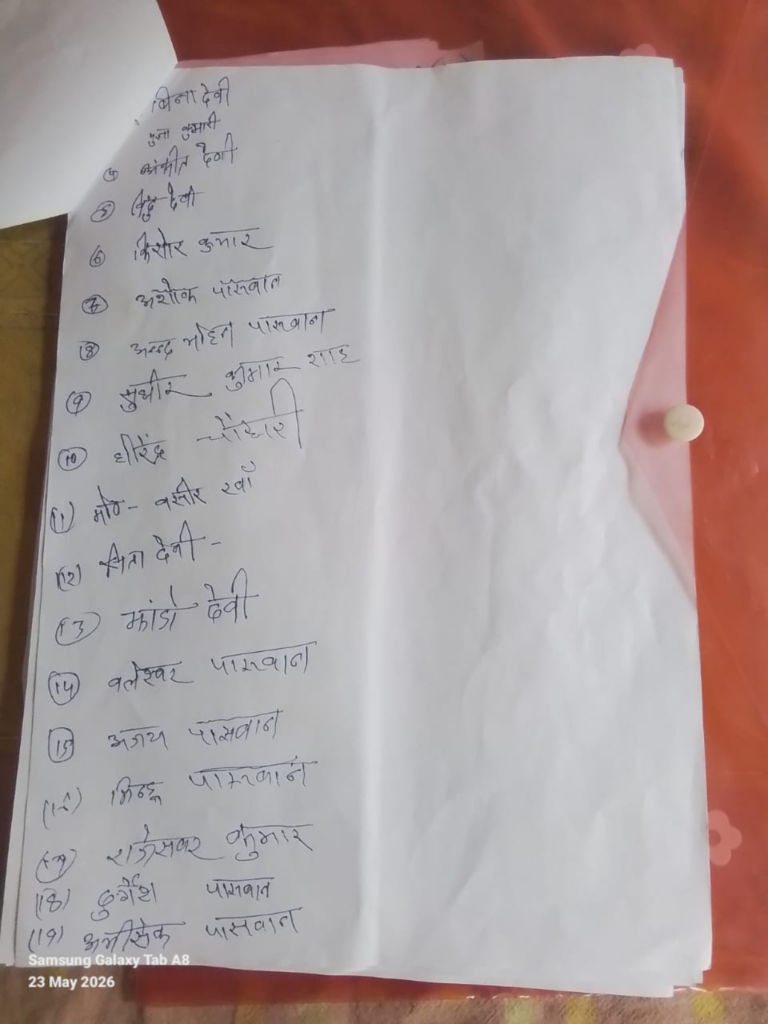 बिना देवी
कुमारी
देवी
(5) बिंदु देवी
(6) किशोर कुमार
(7) अशोक पासवान
(8) मोहन पासवान
(9) सुधीर कुमार साह
(10) धीरेंद्र चौधरी
(11) मो०- वसीर खाँ
(12) देवी -
(13) झांडो देवी
(14) वलेश्वर पासवान
(15) अजय पासवान
(16) पासवान
(17) राजेसवर कुमार
(18) दुर्गेश पासवान
(19) अभीसेक पासवान
Samsung Galaxy Tab A8
23 May 2026